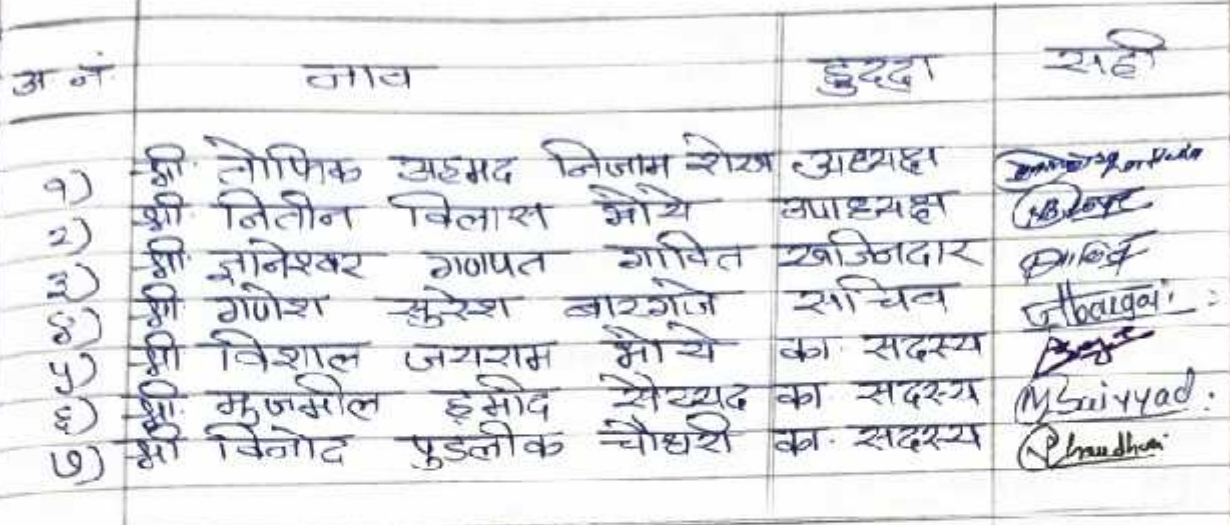 अ नं. नाव हुद्दा सही
१) श्री. तौफिक अहमद निजाम शेख अध्यक्ष
२) श्री नितीन विलास भोये उपाध्यक्ष
३) श्री. ज्ञानेश्वर गणपत गावित खजिनदार
४) श्री गणेश सुरेश बारगजे सचिव Gbargaje
५) श्री विशाल जयराम भोये का. सदस्य
६) श्री. मुजमील हमीद सैय्यद का सदस्य MSaiyyad.
७) श्री विनोद पुडलीक चौधरी का. सदस्य